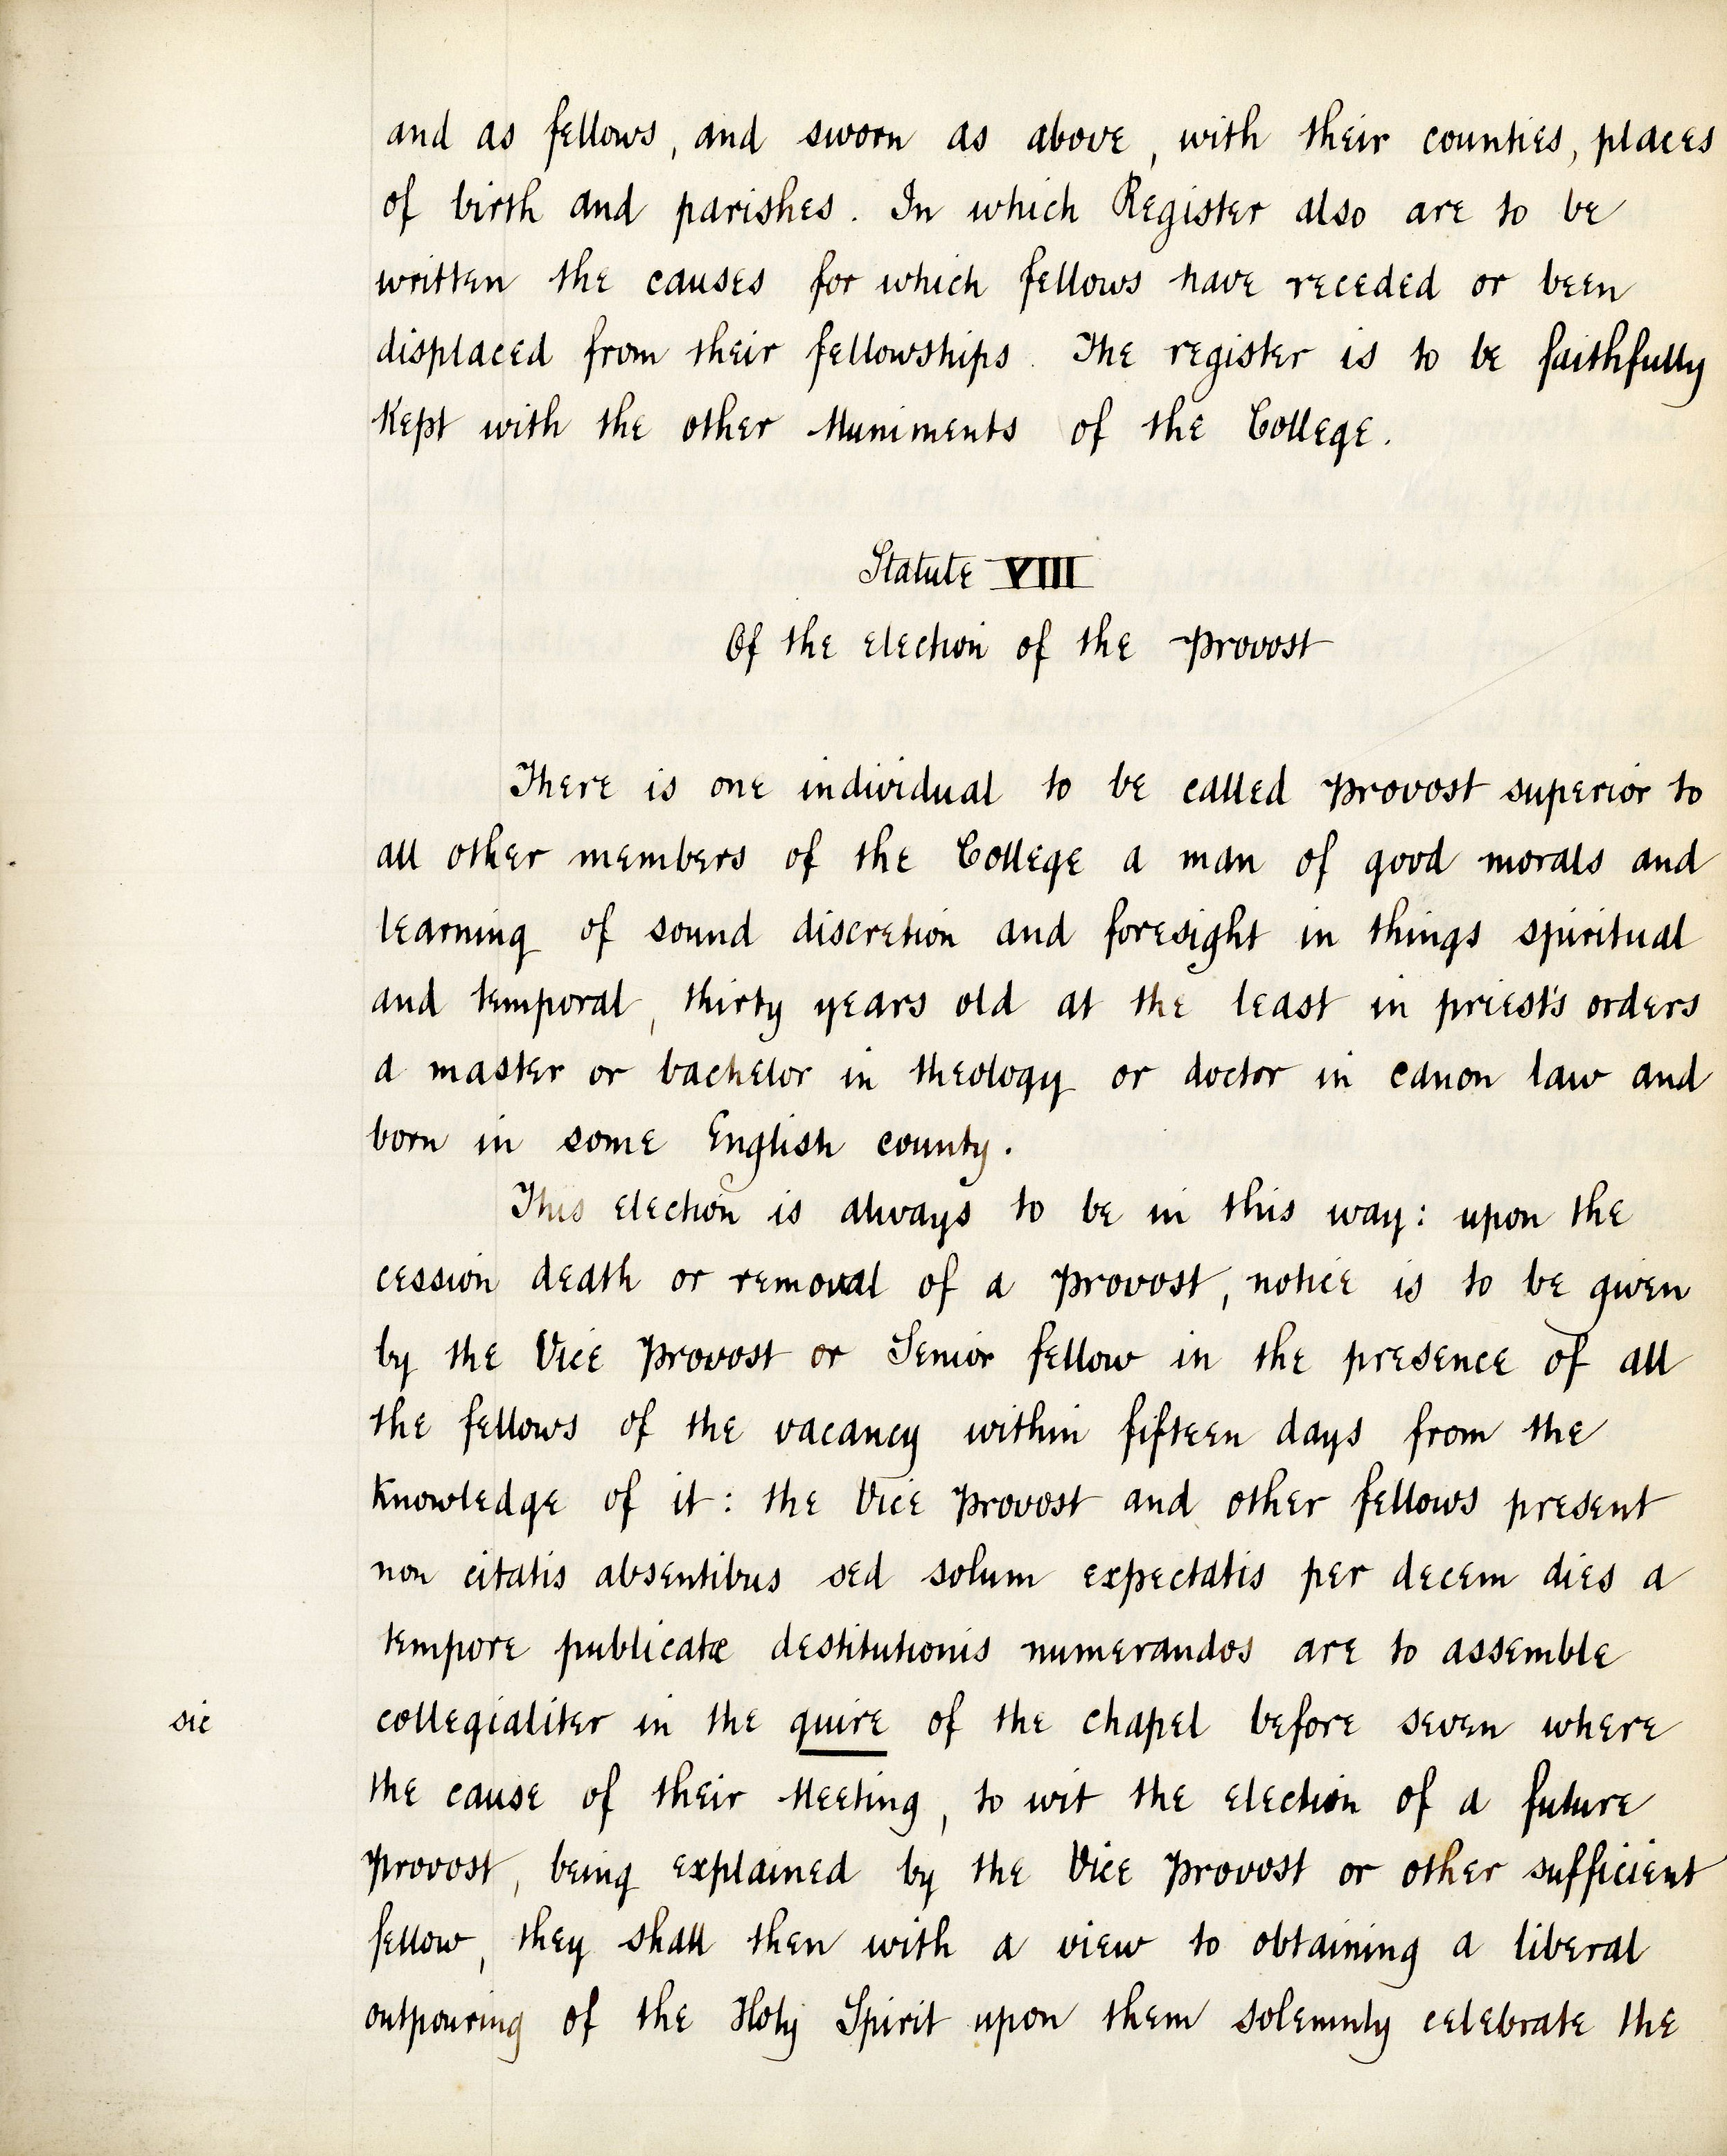 and as fellows, and sworn as above, with their counties, places
of birth and parishes. In which Register also are to be
written the causes for which fellows have receded or been
displaced from their fellowships. The register is to be faithfully
Kept with the other Muniments of the College.
Statute VIII
Of the election of the Provost
There is one individual to be called Provost superior to
all other members of the College a man of good morals and
learning of sound discretion and foresight in things spiritual
and temporal, thirty years old at the least in priest's orders
a master or bachelor in theology or doctor in canon law and
born in some English county.
This election is always to be in this way: upon the
cession death or removal of a Provost, notice is to be given
by the Vice Provost or Senior fellow in the presence of all
the fellows of the vacancy within fifteen days from the
Knowledge of it: the Vice Provost and other fellows present
non citatis absentibus sed solum expectatis per decem dies a
tempore publicatæ destitutionis numerandos are to assemble
sic collegialiter in the quire of the chapel before seven where
the cause of their Meeting, to wit the election of a future
Provost, being explained by the Vice Provost or other sufficient
fellow, they shall then with a view to obtaining a liberal
outpouring of the Holy Spirit upon them solemnly celebrate the